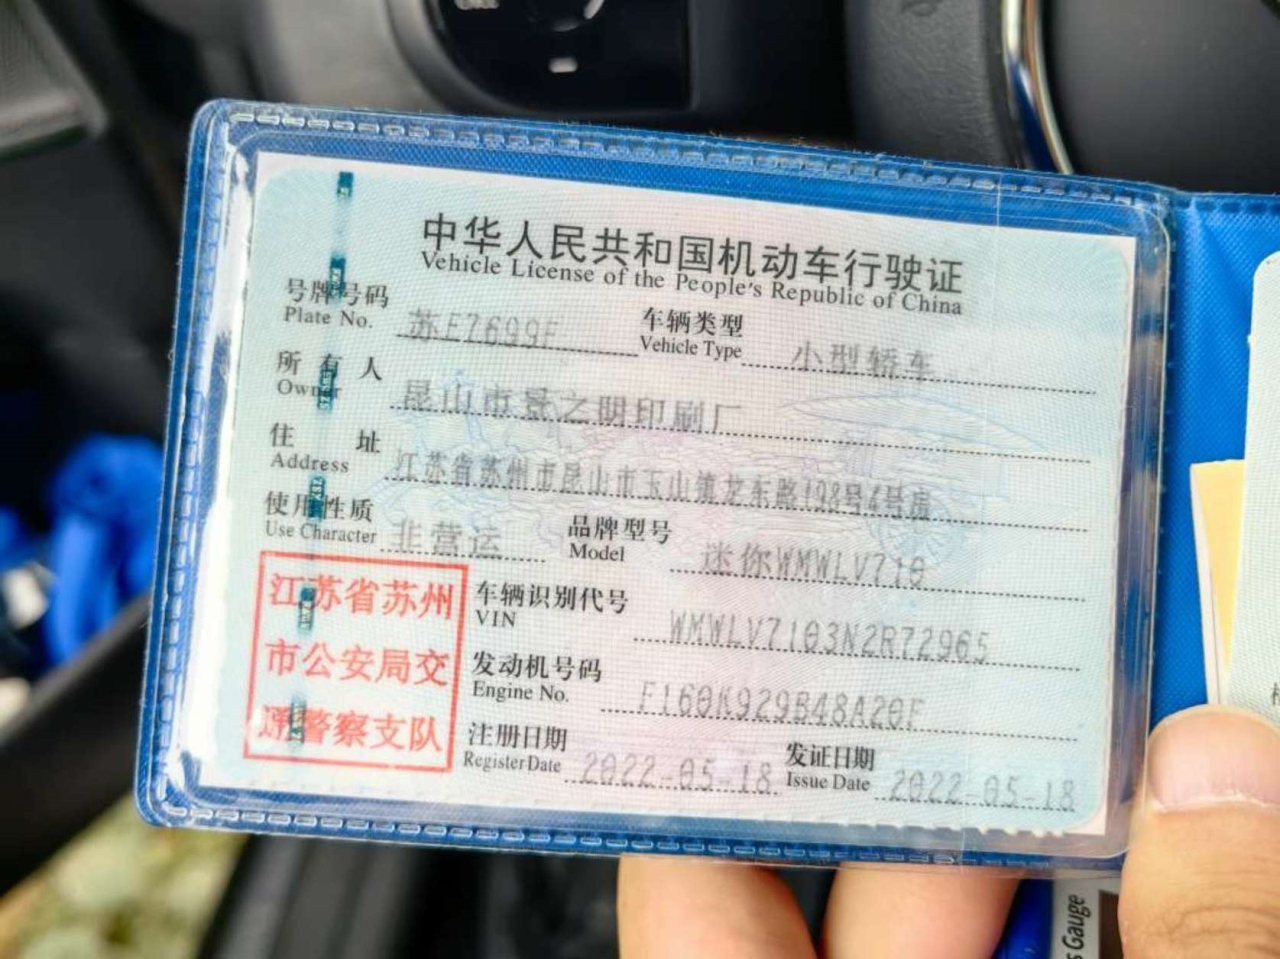 中华人民共和国机动车行驶证
Vehicle License of the People's Republic of China
号牌号码 苏E7699F 车辆类型 小型轿车
Plate No. Vehicle Type
所有人 昆山市景之明印刷厂
Owner
住址 江苏省苏州市昆山市玉山镇龙东路198号4号房
Address
使用性质 非营运 品牌型号 迷你WMWLV710
Use Character Model
江苏省苏州
市公安局交
通警察支队
车辆识别代号 WMWLV7103N2R72965
VIN
发动机号码 F160K929B48A20F
Engine No.
注册日期 2022-05-18 发证日期 2022-05-18
Register Date Issue Date
Gauge